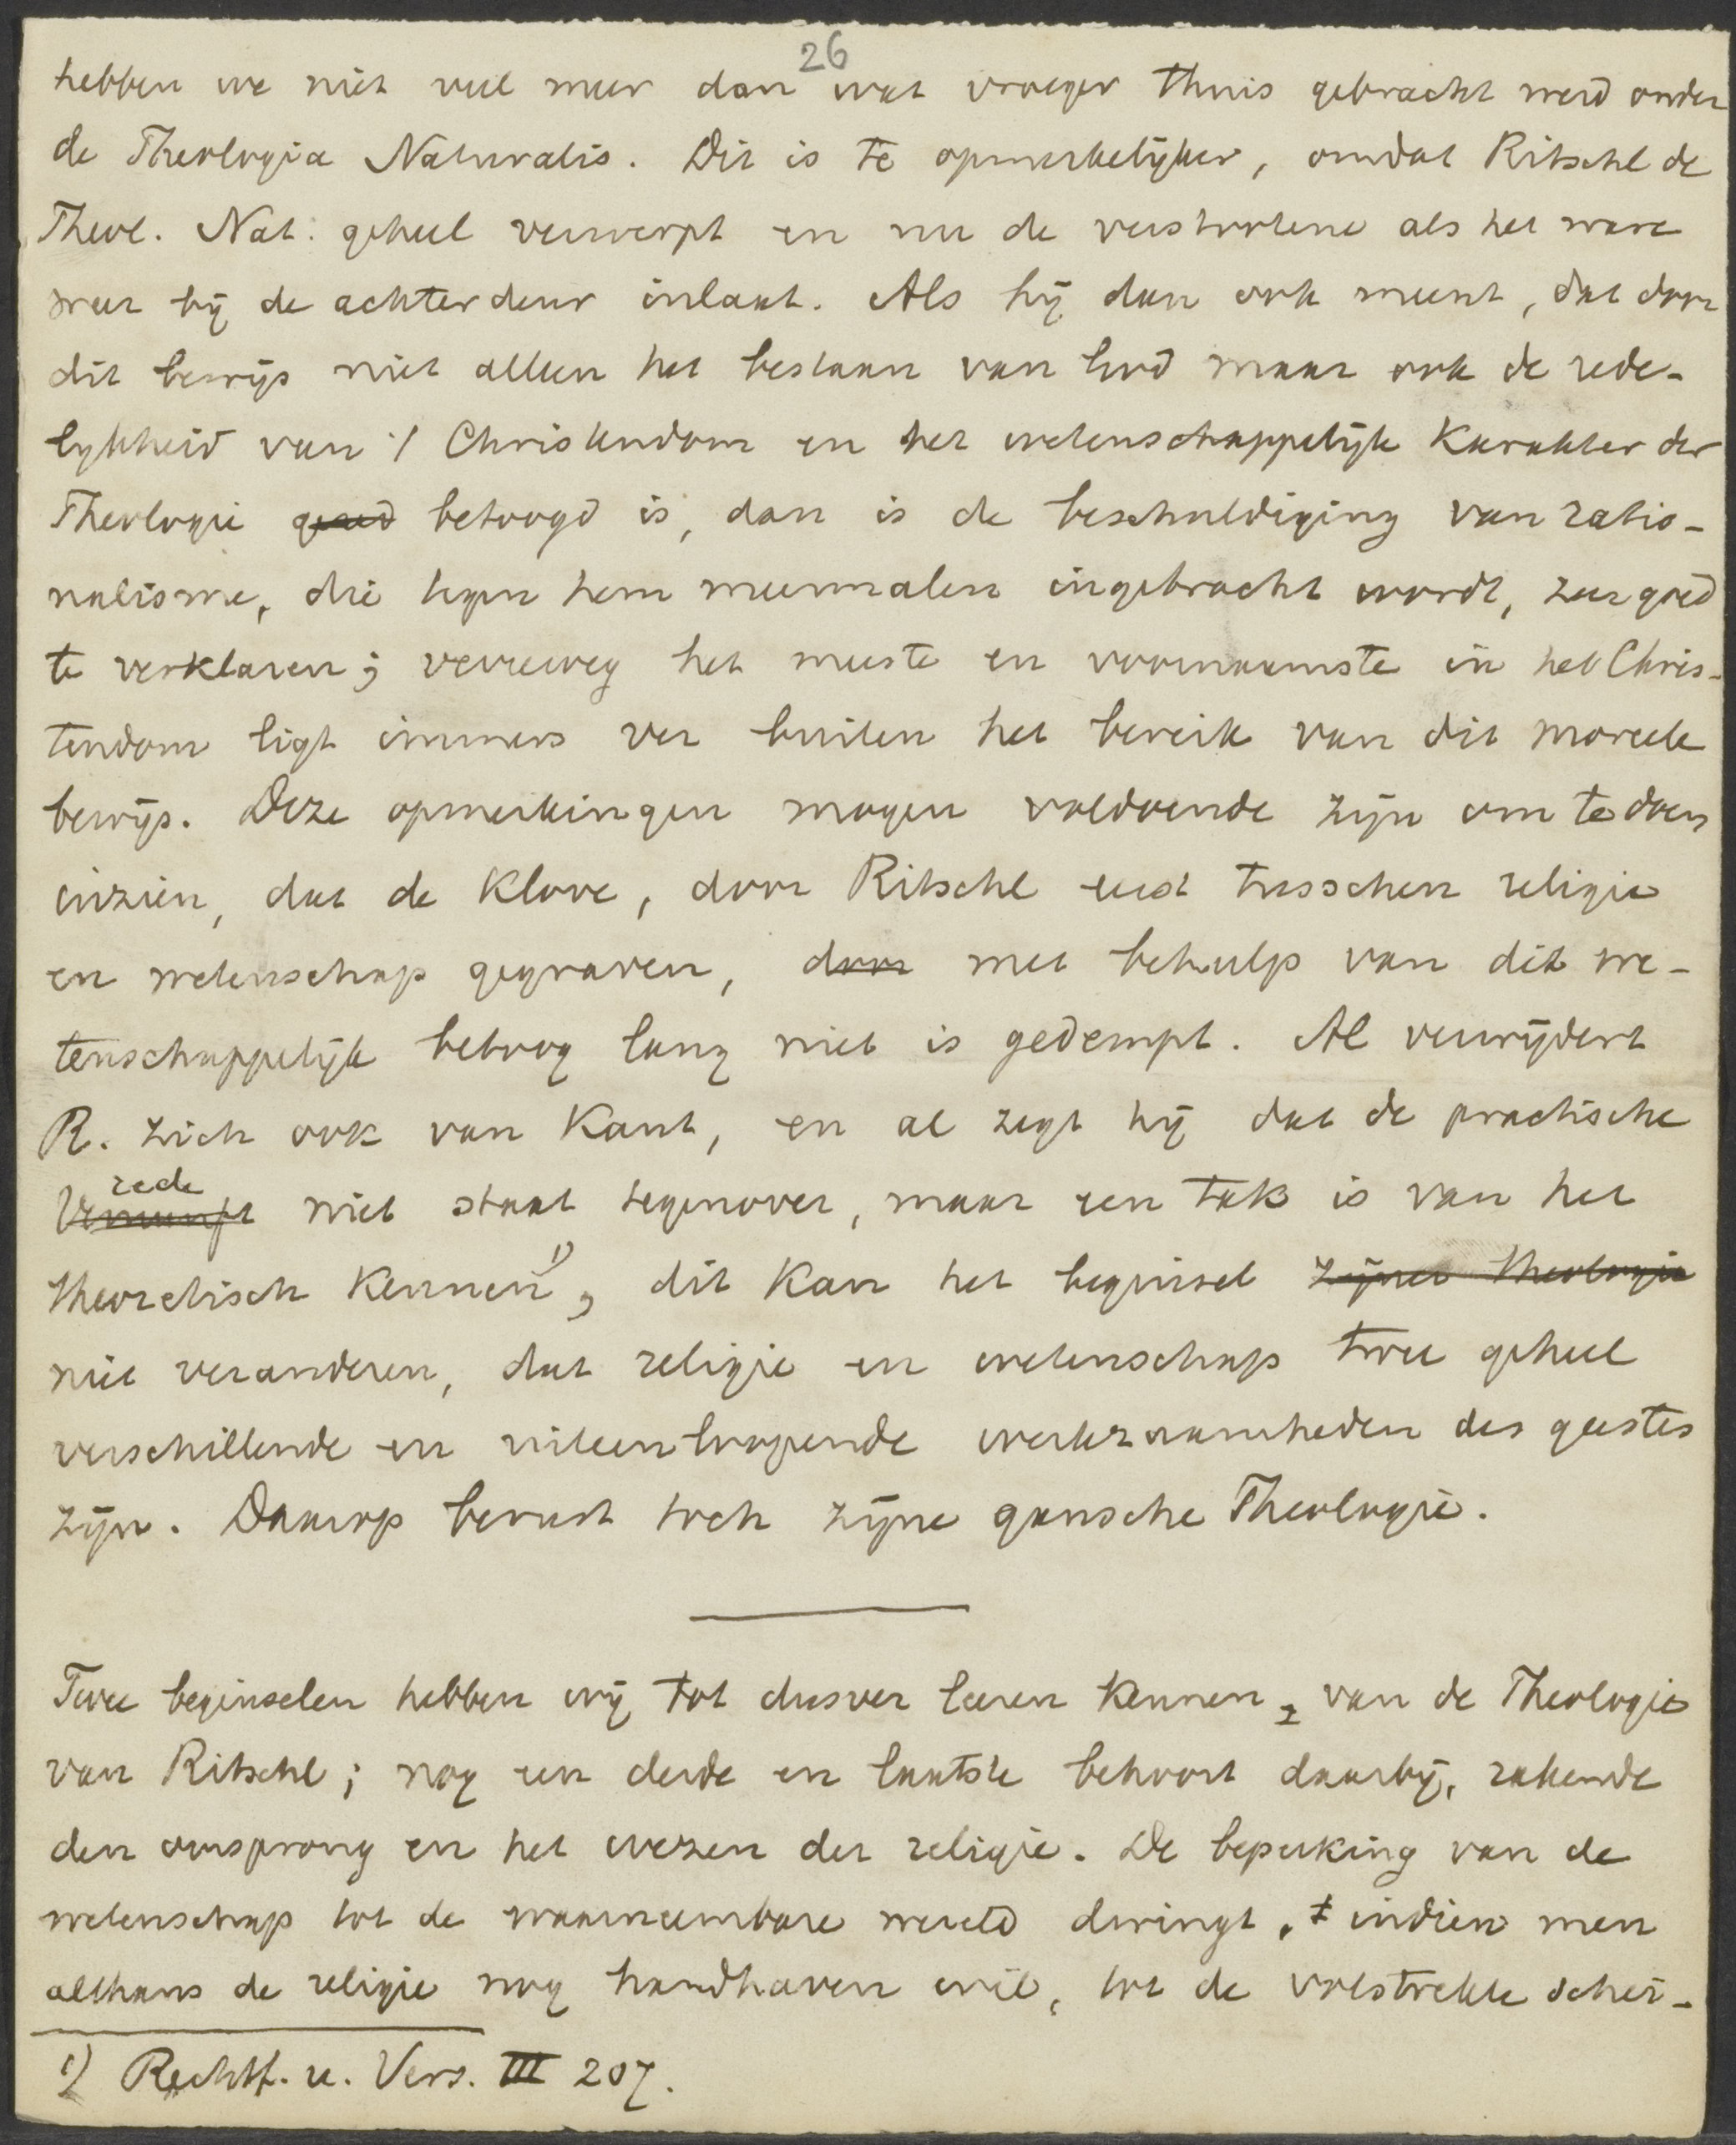 26
hebben we niet veel meer dan wat vroeger thuis gebracht werd onder
de Theologia Naturalis. Dit is te opmerkelijker, omdat Ritschl de
Theol. Nat. geheel verwerpt en nu de verstootene als het ware
weer bij de achterdeur inlaat. Als hij dan ook meent, dat door
dit bewijs niet alleen het bestaan van God maar ook de rede-
lijkheid van 't Christendom en het wetenschappelijk karakter der
Theologie goed betoogd is, dan is de beschuldiging van ratio-
nalisme, die tegen hem meermalen ingebracht wordt, zeer goed
te verklaren; verreweg het meeste en voornaamste in het Chris-
tendom ligt immers ver buiten het bereik van dit moreele
bewijs. Deze opmerkingen mogen voldoende zijn om te doen
inzien, dat de klove, door Ritschl eerst tusschen religie
en wetenschap gegraven, door met behulp van dit we-
tenschappelijk betoog lang niet is gedempt. Al verwijdert
R. zich ook van Kant, en al zegt hij dat de practische
rede
Vernunft niet staat tegenover, maar een tak is van het
theoretisch kennen 1), dit kan het beginsel zijner Theologie
niet veranderen, dat religie en wetenschap twee geheel
verschillende en uiteenloopende werkzaamheden des geestes
zijn. Daarop berust toch zijne gansche Theologie.
Twee beginselen hebben wij tot dusver leeren kennen van de Theologie
van Ritschl; nog een derde en laatste behoort daarbij, rakende
den oorsprong en het wezen der religie. De beperking van de
wetenschap tot de waarneembare wereld dwingt, indien men
althans de religie nog handhaven wil, tot de volstrekte schei-
1) Rechtf. u. Vers. III 207.